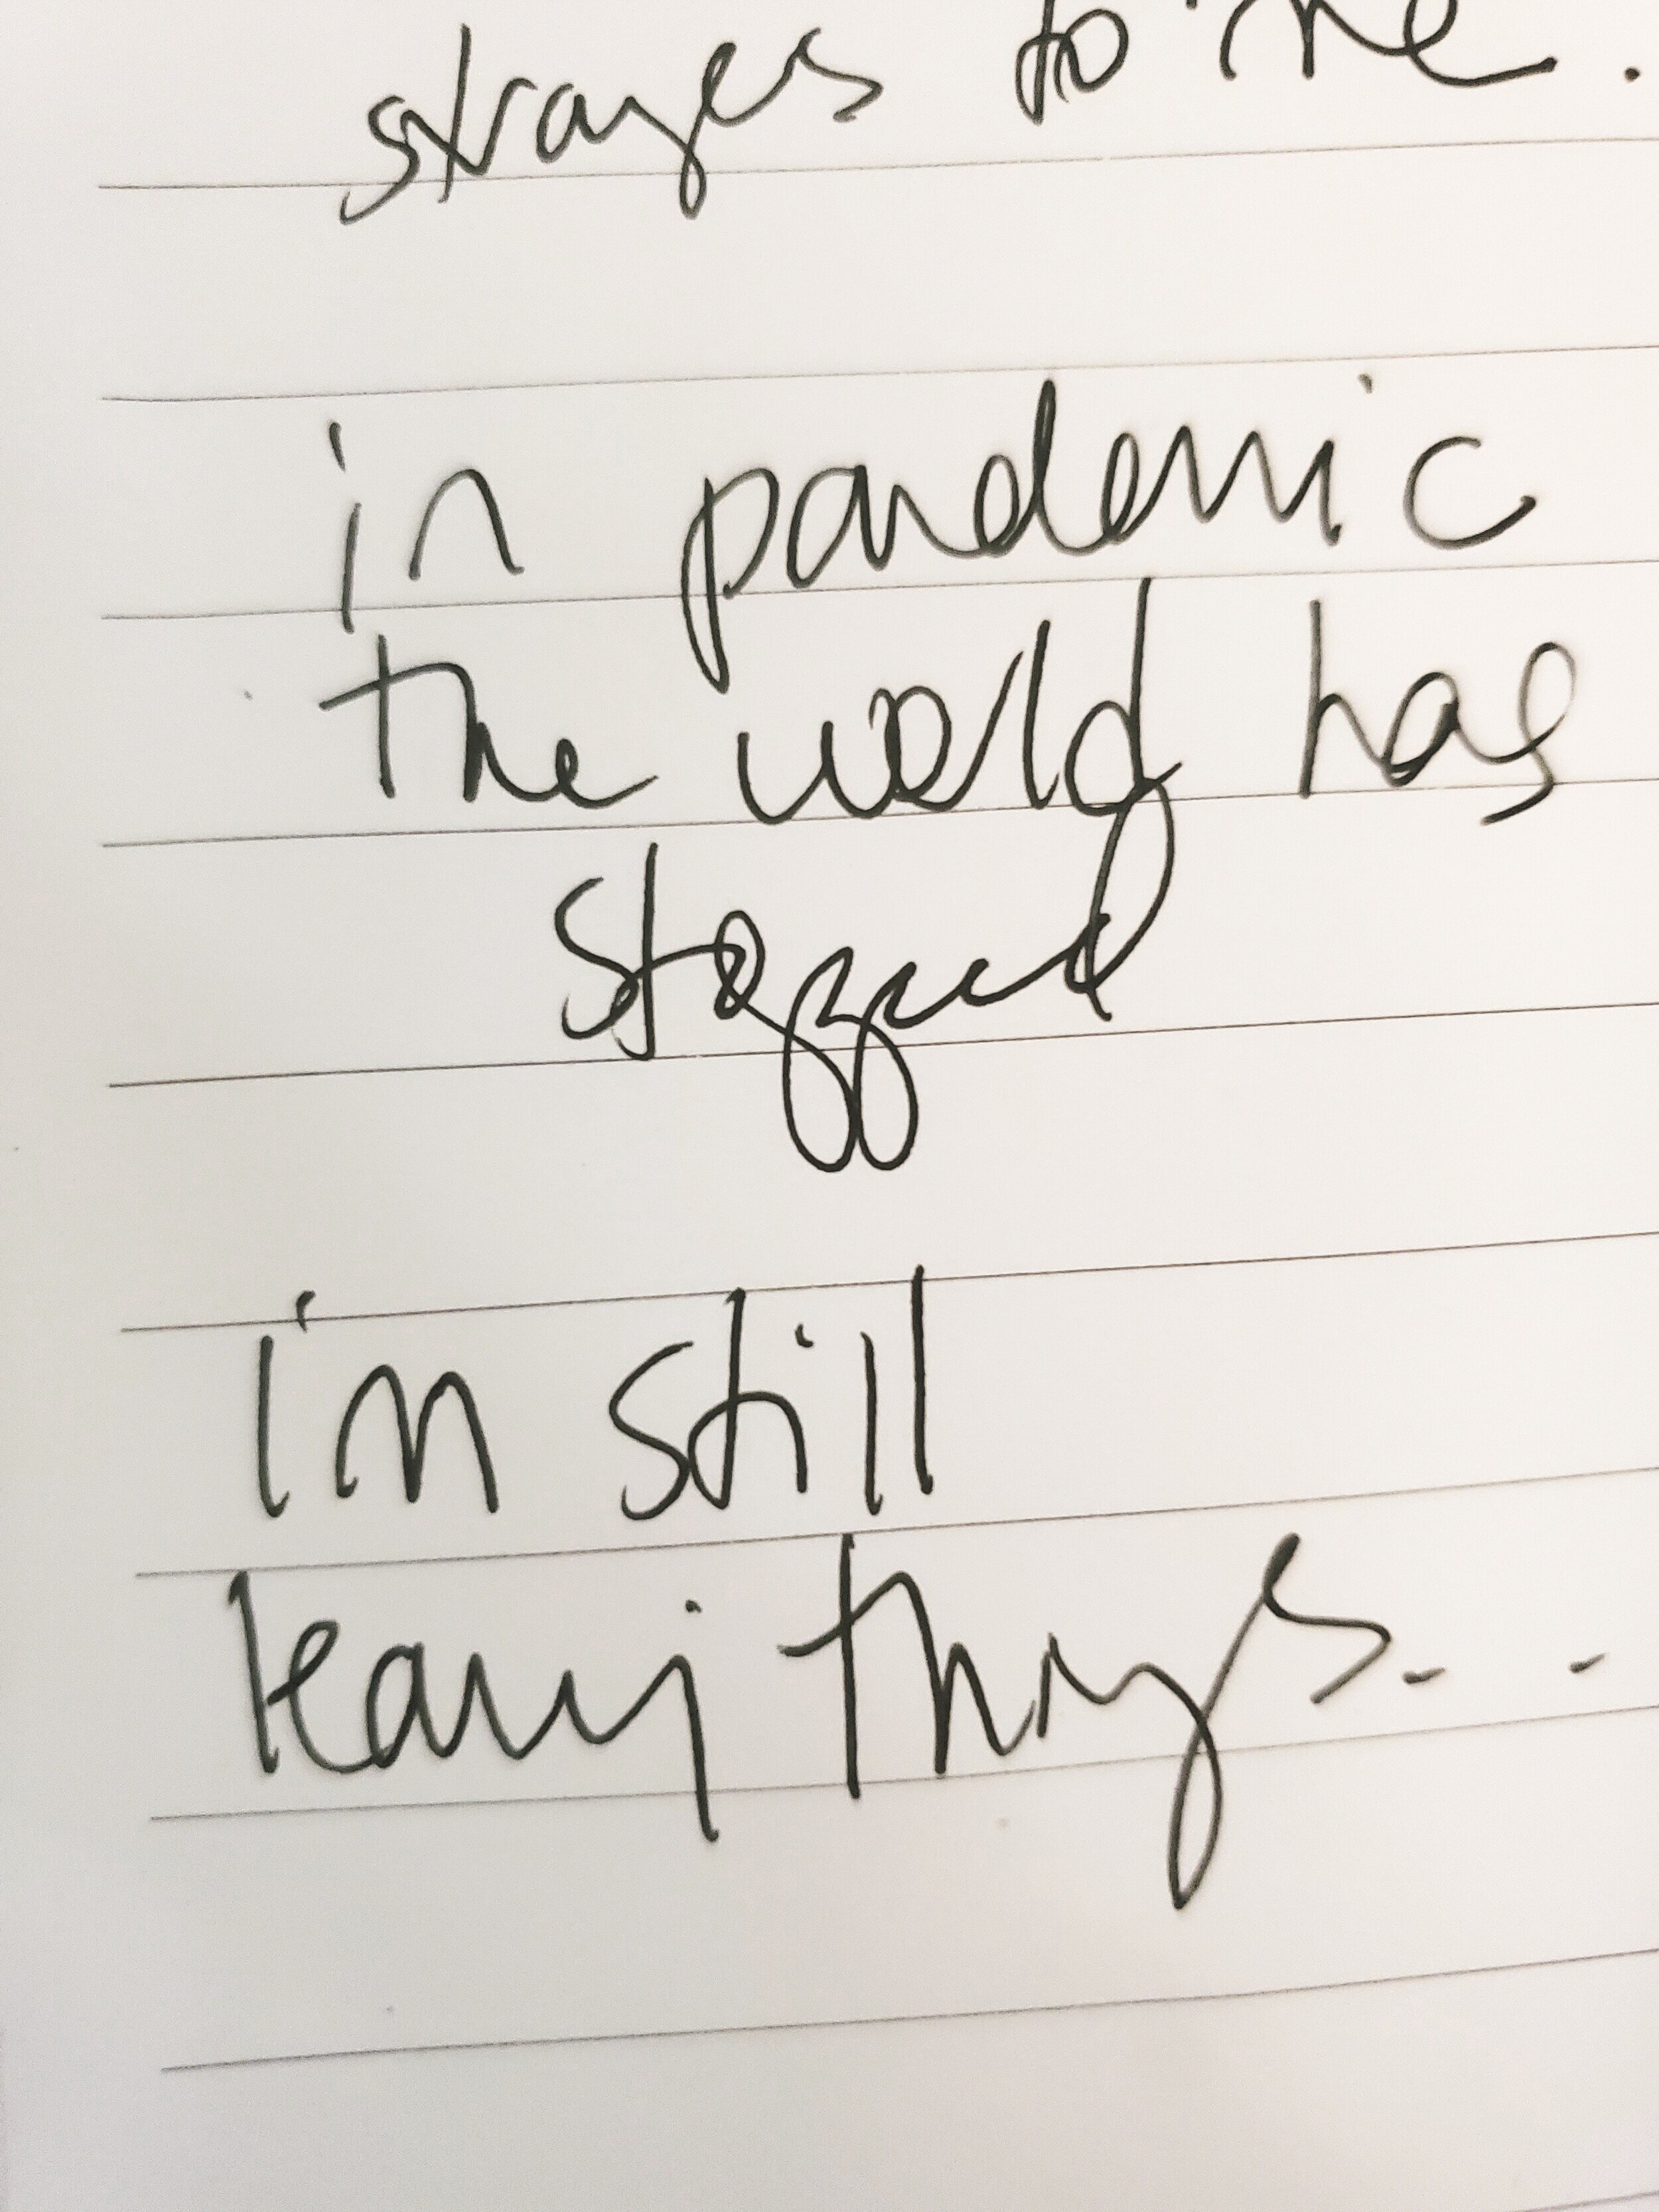 strages to me.
in pandemic
the world has
stopped
i'm still
learning things...